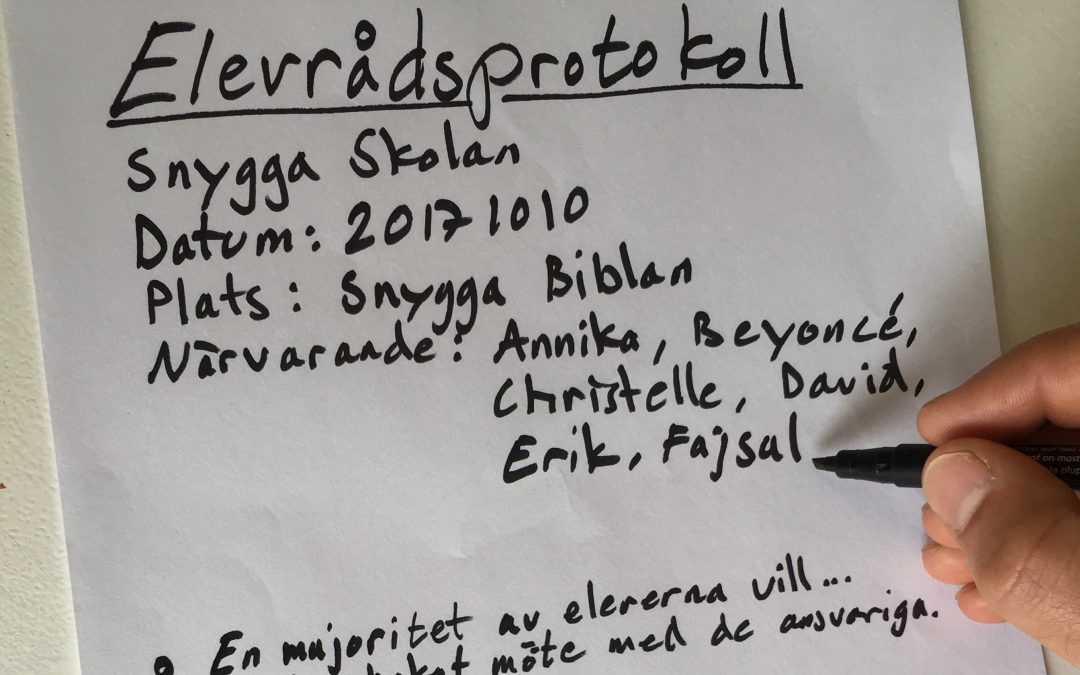 Elevrådsprotokoll
Snygga Skolan
Datum: 20171010
Plats: Snygga Biblan
Närvarande: Annika, Beyoncé,
Christelle, David,
Erik, Fajsal
En majoritet av eleverna vill...
möte med de ansvariga.